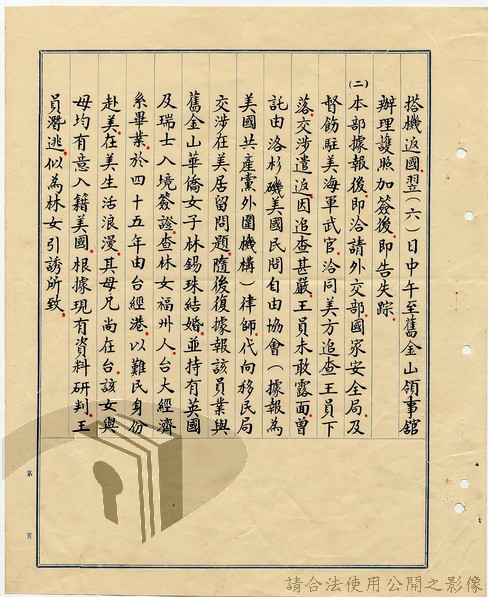 搭機返國。翌(六)日中午至舊金山領事舘
辦理護照加簽後，即告失踪。
(二)本部據報後，即洽請外交部、國家安全局及
督飭駐美海軍武官，洽同美方追查王員下
落，交涉遣返。因追查甚嚴，王員未敢露面，曾
託由洛杉磯美國民間自由協會（據報為
美國共產黨外圍機構）律師代向移民局
交涉在美居留問題。隨後復據報該員業與
舊金山華僑女子林錫珠結婚，並持有英國
及瑞士入境簽證。查林女福州人，台大經濟
系畢業，於四十五年由台經港，以難民身份
赴美，在美生活浪漫，其母兄尚在台，該女與
母均有意入籍美國。根據現有資料研判，王
員潛逃，似為林女引誘所致。
第　頁
請合法使用公開之影像